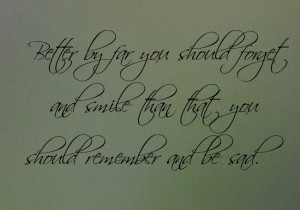 Better by far you should forget
and smile than that you
should remember and be sad.